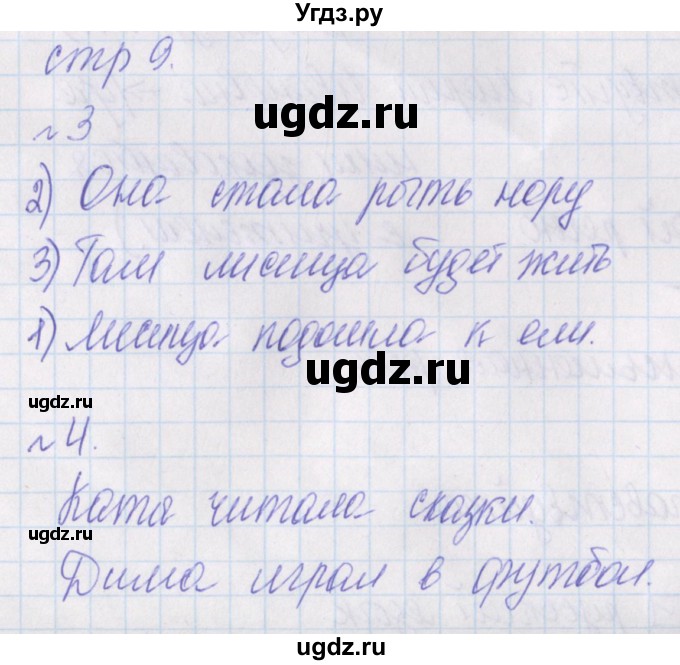 Угдз.ру
стр 9.
ugdz.ru
№3
2) Она стала рыть нору
3) Там лисица будет жить
1) Лисица подошла к ели.
ugdz.ru
ugdz.ru
№4.
Катя читала сказки.
ugdz.ru
Дима играл в футбол.
ugdz.ru